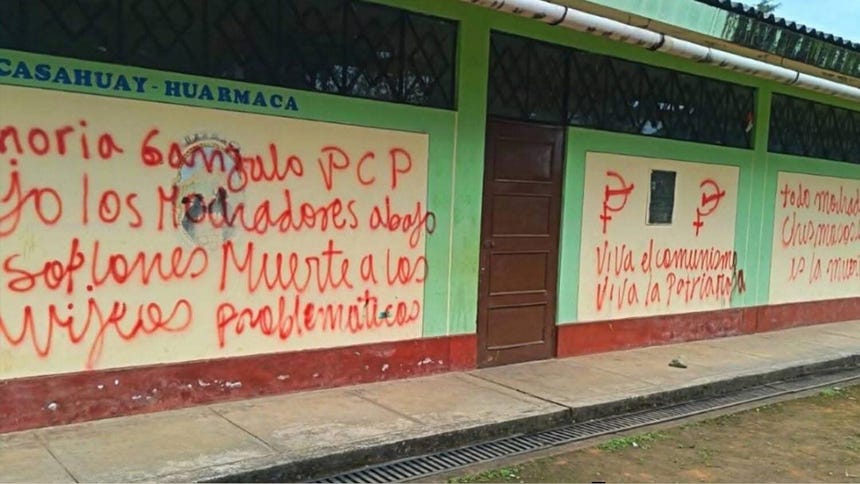 CASAHUAY - HUARMACA
moria Gangulo PCP
jo los Mochadores abajo
soplones Muerte a los
wijeos problematicos
Viva el comunismo
Viva la Patria
todo mochad
chismosos
is la muer